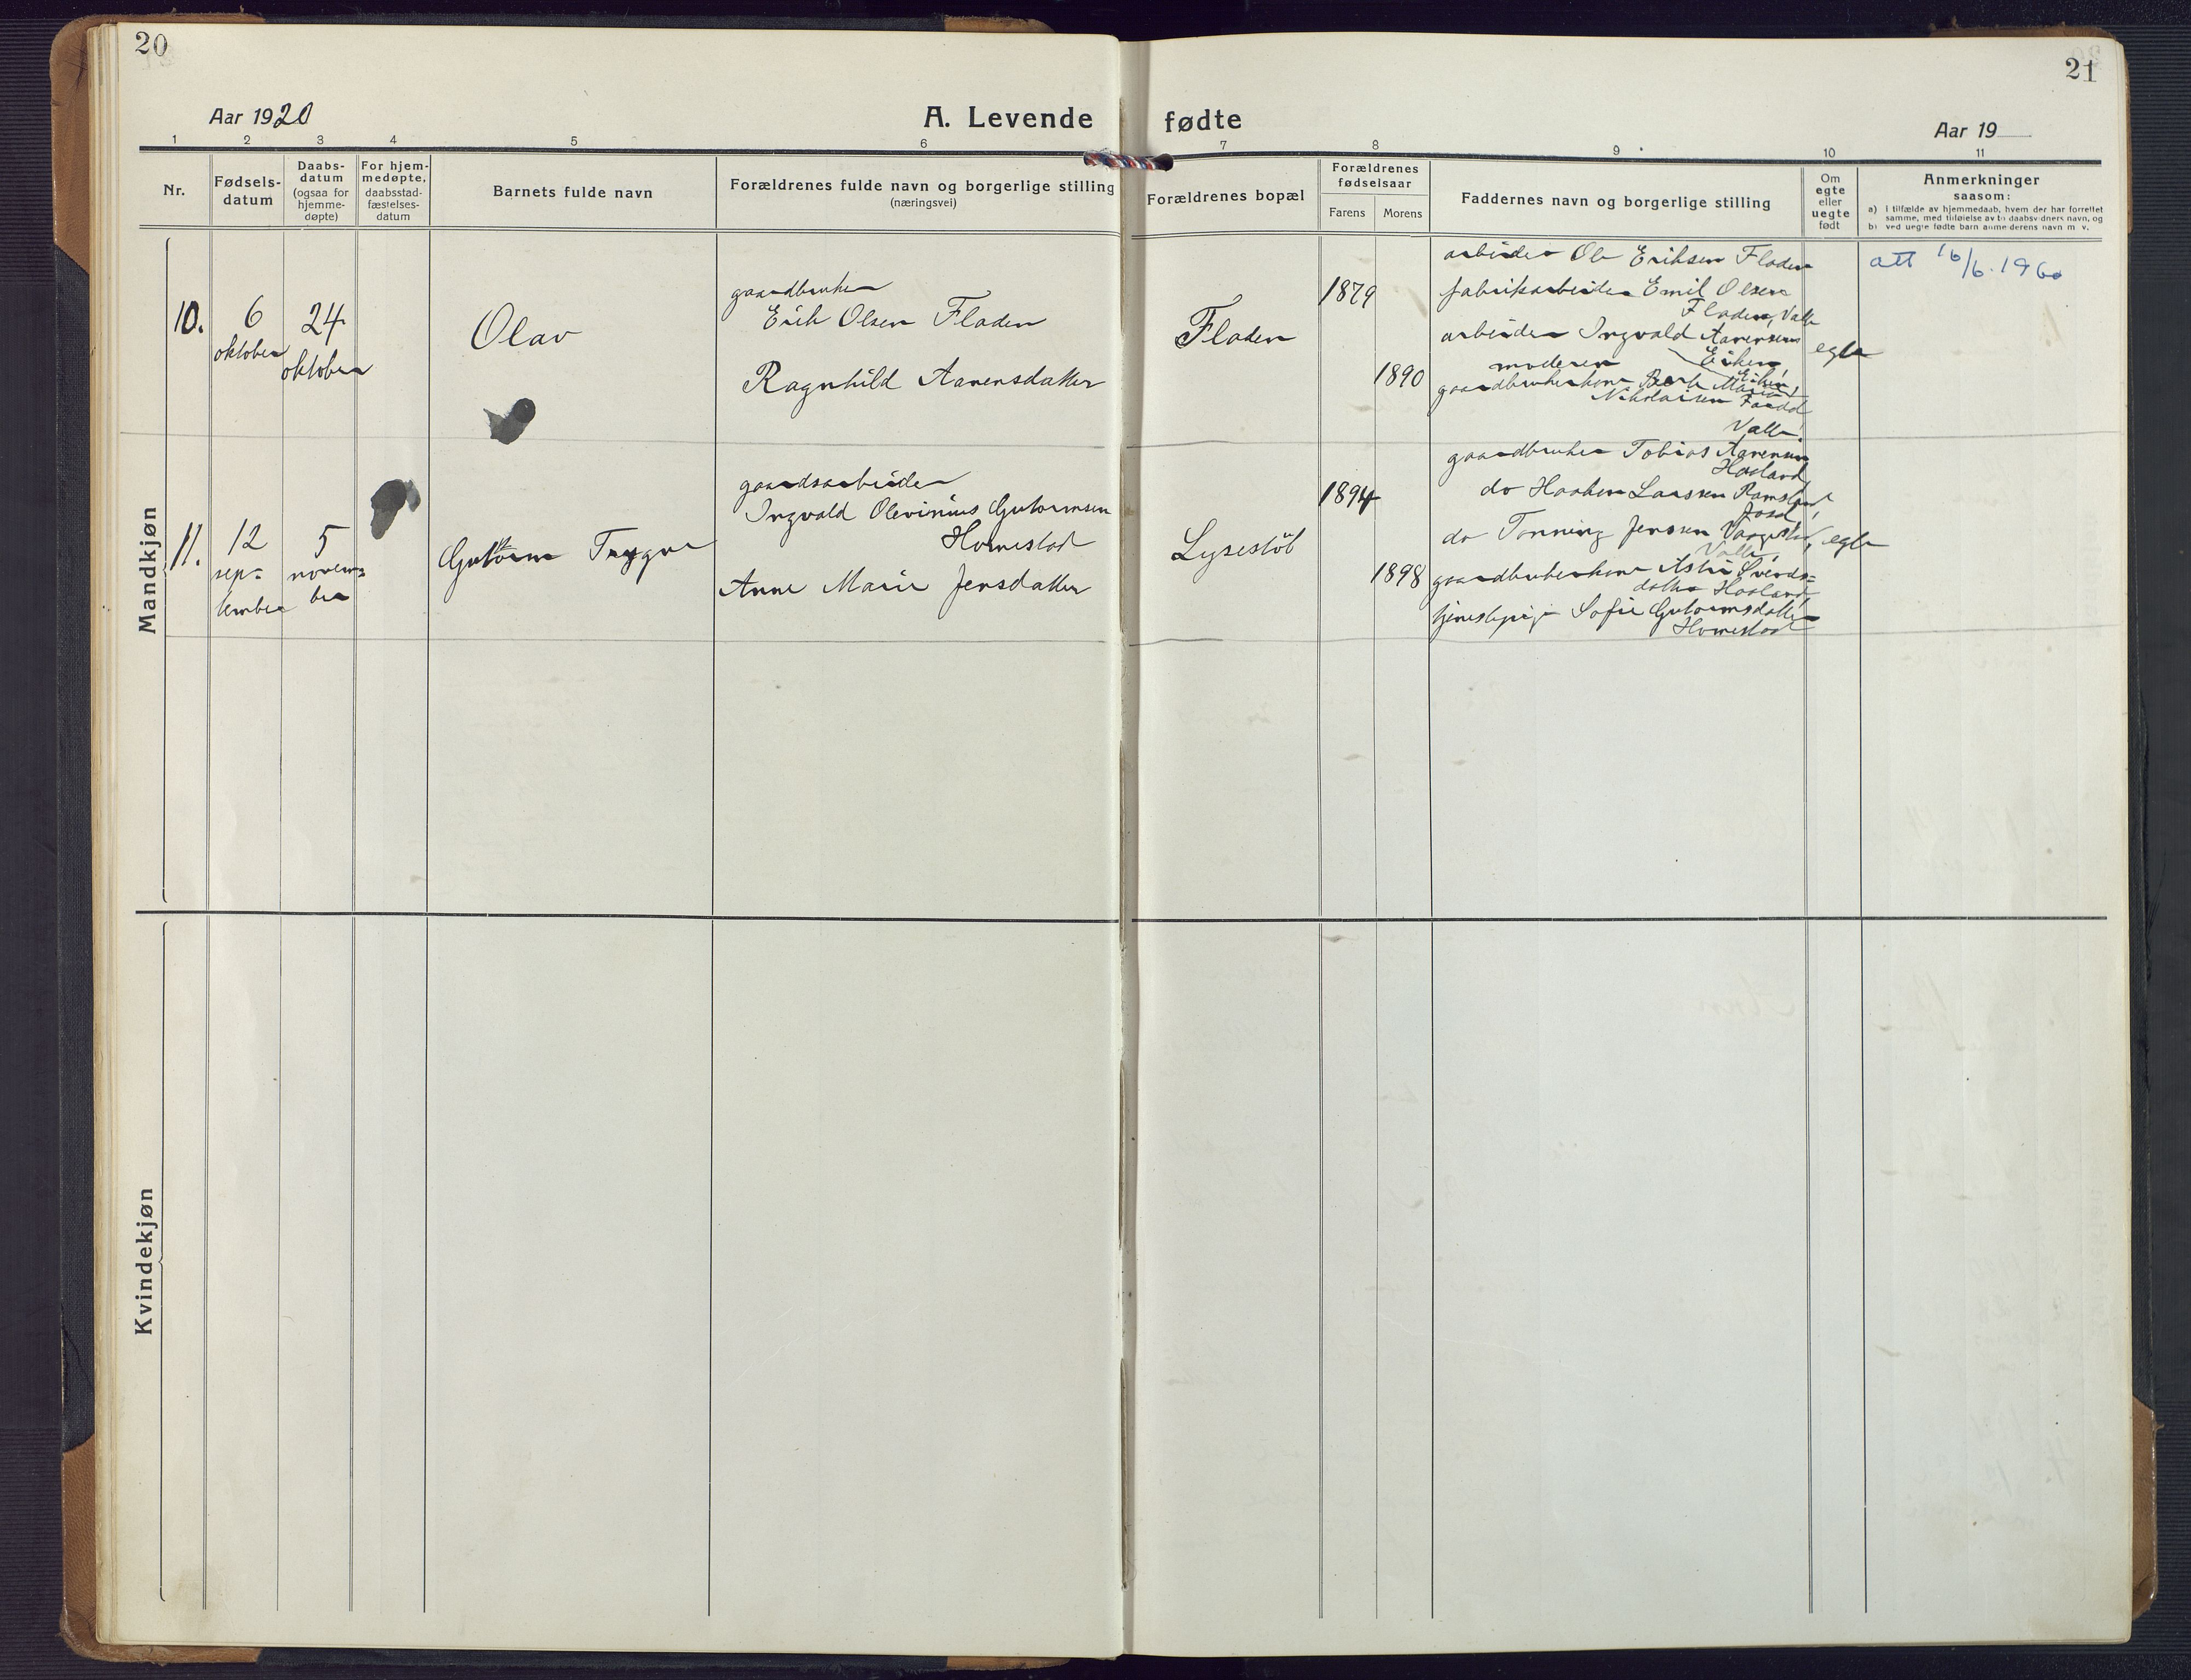 20
21
Aar 1920
A. Levende fødte
Aar 19
1 2 3 4 5 6 7 8 9 10 11
Nr.
Fødsels-
datum
Daabs-
datum
(ogsaa for
hjemme-
døpte)
For hjem-
medøpte,
daabsstad-
fæstelses-
datum
Barnets fulde navn
Forældrenes fulde navn og borgerlige stilling
(næringsvei)
Forældrenes bopæl
Forældrenes
fødselsaar
Farens
Morens
Faddernes navn og borgerlige stilling
Om
egte
eller
uegte
født
Anmerkninger
saasom:
a) i tilfælde av hjemmedaab, hvem der har forrettet
samme, med tilføielse av to daabsvidners navn, og
b) ved uegte fødte barn anmelderens navn m. v.
Mandkjøn
10.
6
oktober
24
oktober
Olav
gaardbruker
Erik Olsen Fladen
Ragnhild Aanensdatter
Fladen
1879
1890
arbeider Ole Eriksen Fladen
fabrikarbeider Emil Olsen
Fladen, Valle
arbeider Ingvald Aanensen
Eiken,
moderen
Eiken,
gaardbrukerkone Berte Marie
Nikolaisen Faadal
Valle.
egte
att 16/6.1960
11.
12
sep-
tember
5
novem-
ber
Guttorm Trygve
gaardsarbeider
Ingvald Olevinius Gutormsen
Homestad
Anne Marie Jensdatter
Lysestöl
1894
1898
gaardbruker Tobias Aanensen
Haaland,
do Haaken Larsen Ramsland,
do Tønning Jensen
Valle,
gaardbrukerkone Astri Svends-
datter Haaland,
tjenestepige Sofie Gutormsdatter
Homestad
egte
Kvindekjøn